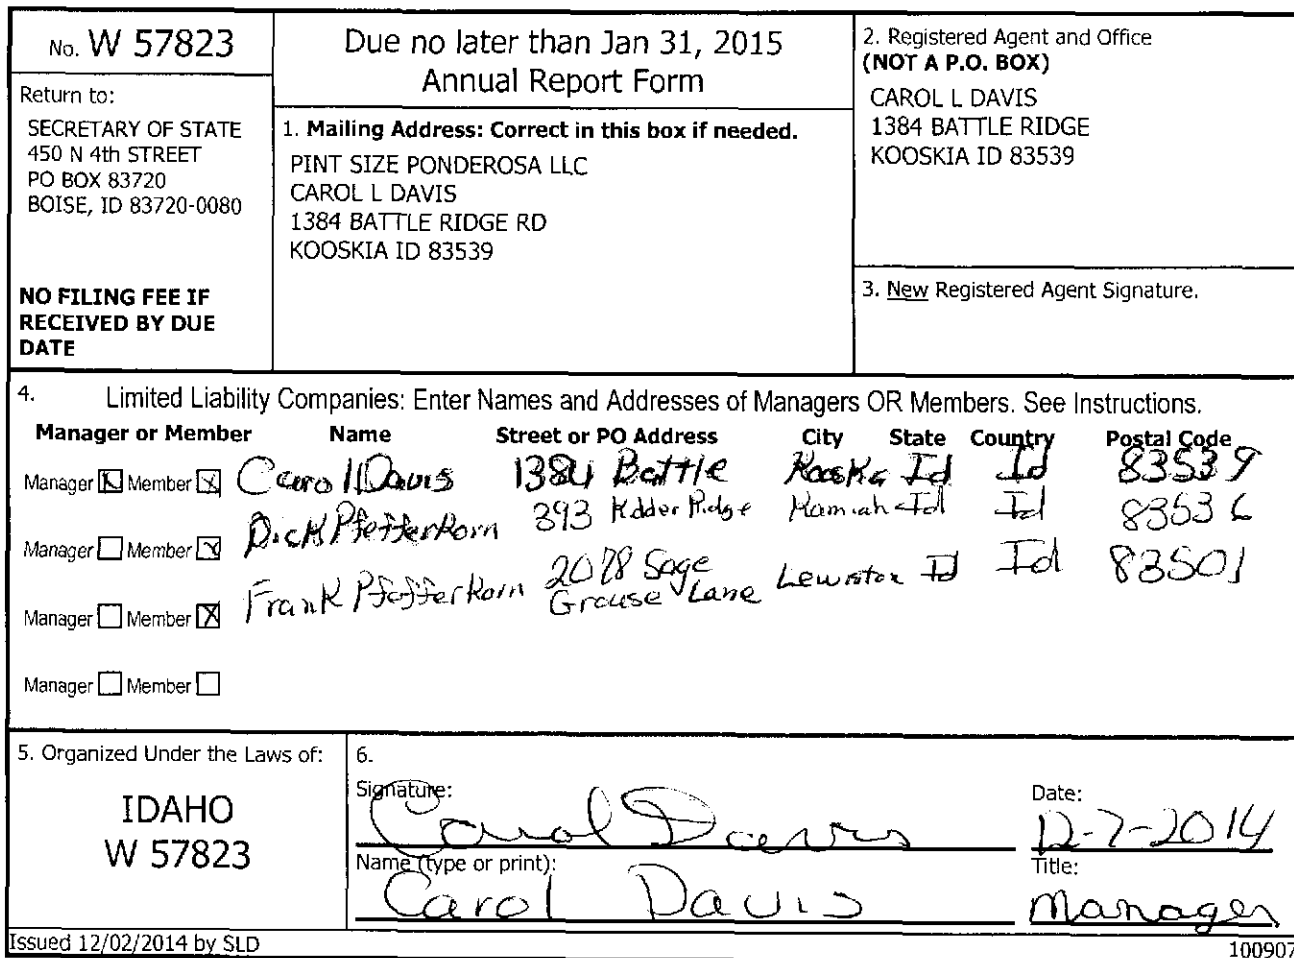 No. W 57823
Return to:
SECRETARY OF STATE
450 N 4th STREET
PO BOX 83720
BOISE, ID 83720-0080
NO FILING FEE IF
RECEIVED BY DUE
DATE
Due no later than Jan 31, 2015
Annual Report Form
1. Mailing Address: Correct in this box if needed.
PINT SIZE PONDEROSA LLC
CAROL L DAVIS
1384 BATTLE RIDGE RD
KOOSKIA ID 83539
2. Registered Agent and Office
(NOT A P.O. BOX)
CAROL L DAVIS
1384 BATTLE RIDGE
KOOSKIA ID 83539
3. New Registered Agent Signature.
4. Limited Liability Companies: Enter Names and Addresses of Managers OR Members. See Instructions.
Manager or Member Name Street or PO Address City State Country Postal Code
Manager Member Carol Davis 1384 Battle Id Id 83539
Manager Member Dick Pfefferkorn 393 Kidder Ridge Kamiah Id Id 83536
Manager Member Frank Pfefferkorn 2078 Sage Grouse Lane Lewiston Id Id 83501
Manager Member
5. Organized Under the Laws of:
IDAHO
W 57823
6.
Signature: Carol Davis
Date: 12-7-2014
Name (type or print): Carol Davis
Title: Manager
Issued 12/02/2014 by SLD
100907